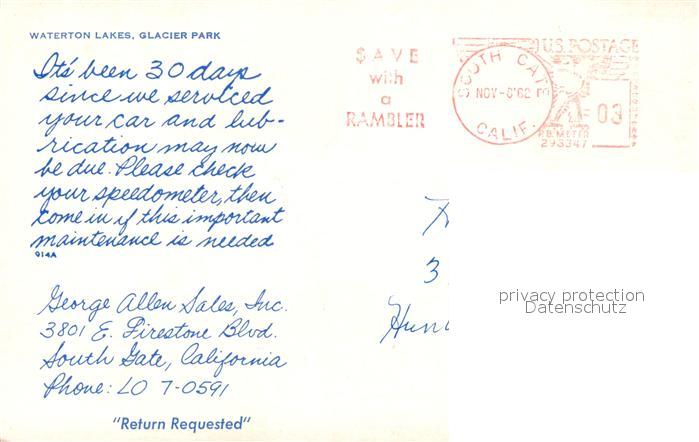 WATERTON LAKES, GLACIER PARK
It's been 30 days
since we serviced
your car and lub-
rication may now
be due. Please check
your speedometer, then
come in if this important
maintenance is needed
014A
George Allen Sales, Inc.
3801 E. Firestone Blvd.
South Gate, California
Phone: LO 7-0591
"Return Requested"
SAVE
with
a
RAMBLER
SOUTH GATE
NOV-6'62
CALIF.
U.S. POSTAGE
03
P.B. METER
293347
3
privacy protection
Datenschutz